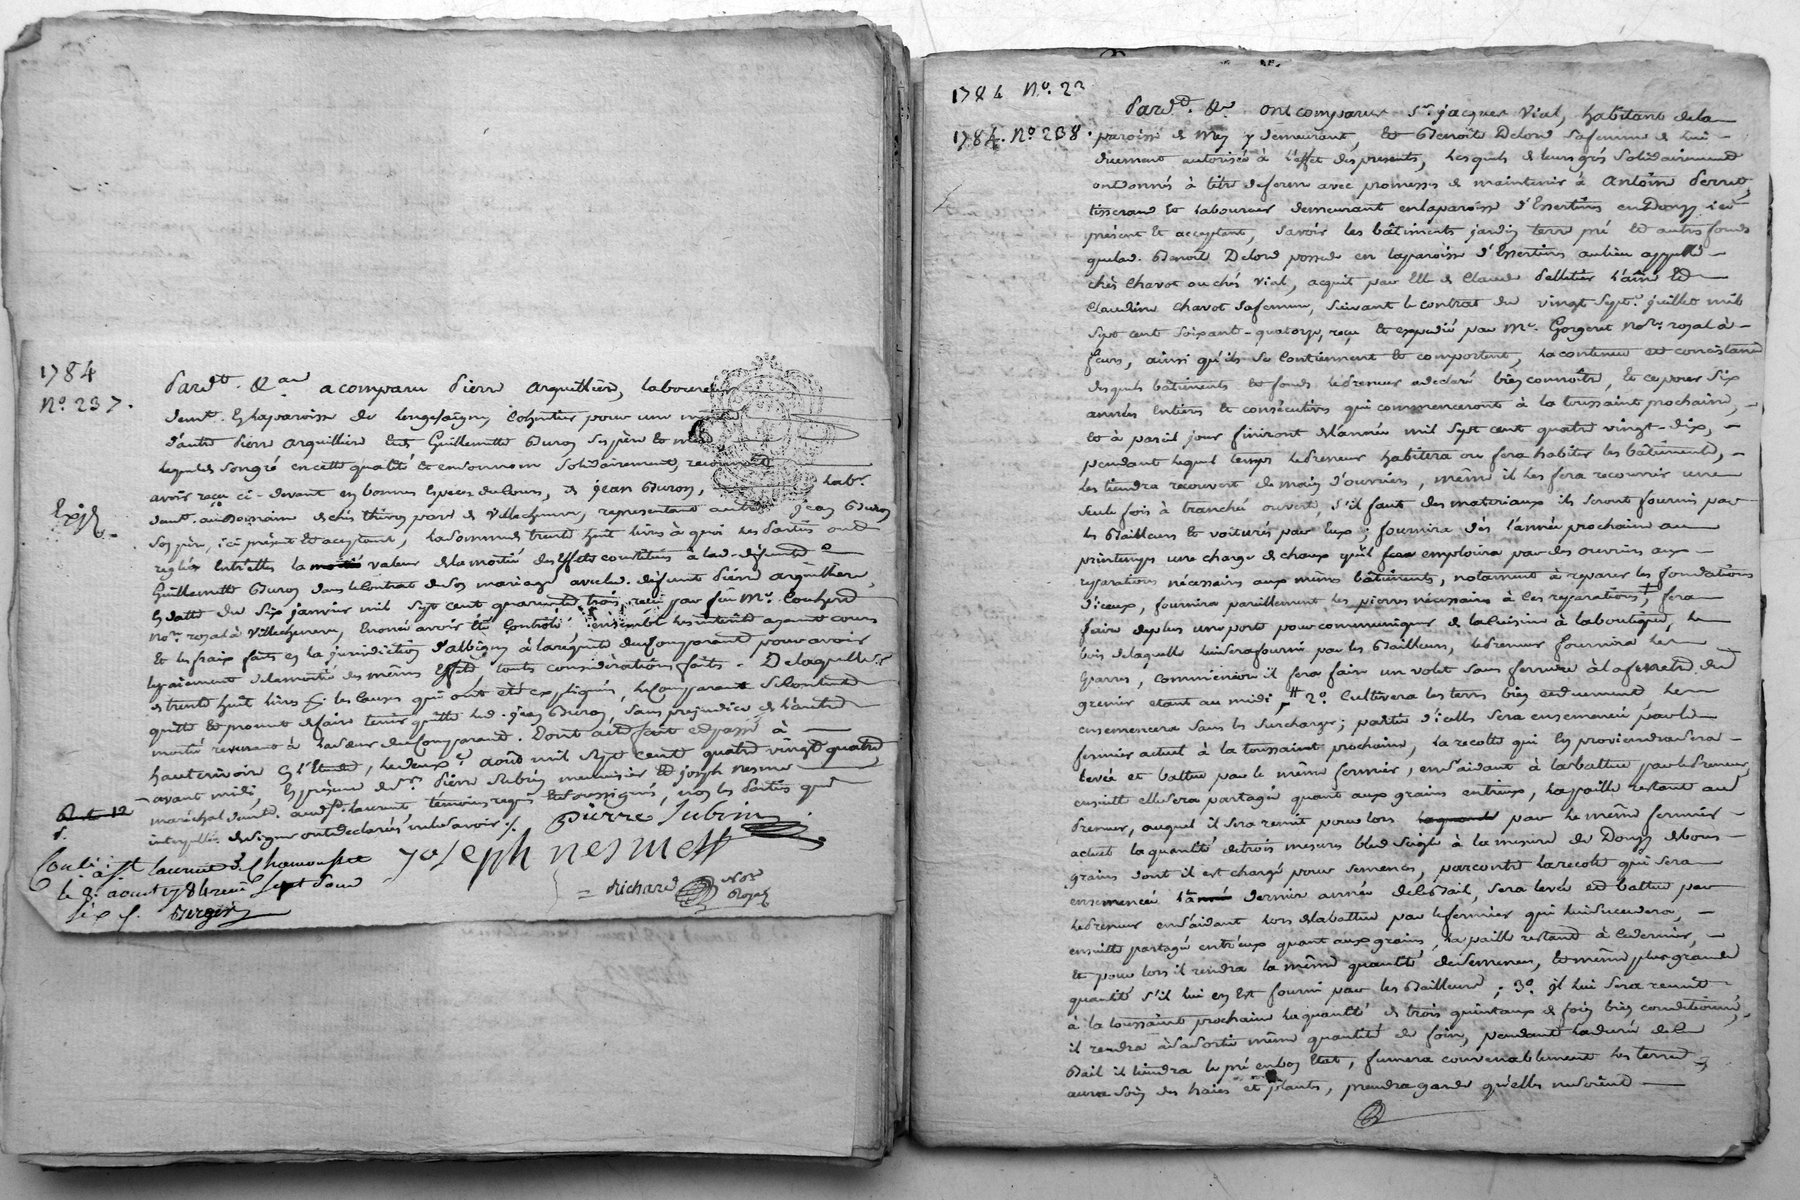 1784
N.o 237.
Pard.t &.a a comparu Pierre arguillière, laboureur
dem.t en la paroisse de Longesaigne, cohéritier pour une moitié
d'autre Pierre arguillière et Guillemette Buron ses père et mère
lequel de son gré en cette qualité et en son nom solidairement, reconnoit
avoir reçu ci-devant en bonnes espèces du cours, de jean Buron, lab.r
Expé.
demt. au domaine de chés thivon par.se de Villechenève, représentant autre jean Buron
son père, ici présent et acceptant, la somme de trente huit livres à quoi les parties ont
reglés entr'elles la valeur de la moitié des effets constitués à lad. défunte
Guillemette Buron dans le contrat de son mariage avec led. défunt Pierre arguillière,
en datte du six janvier mil sept cent quarante trois, reçu par feu M.e
no.re royal à Villechenève, énoncé avoir été controlé, ensemble les intérêts ayant cours
et les fraix faits en la jurisdiction d'albigny à la requête du comparant pour avoir
le paiement de la moitié des mêmes effets, toutes considérations faites. De laquelle
de trente huit livres p.r les causes qui ont été expliqués, le comparant se contente
quitte et promet de faire tenir quitte led. jean Buron, sans préjudice de l'autre
moitié revenant à la sœur du comparant. Dont acte fait et passé à
hauterivoire en l'Etude, le deux.e août mil sept cent quatre vingt quatre
avant midi, en présence de s.r Pierre Subrin menuisier et joseph nesme
maréchal dem.t aud. st. laurent témoins requis et soussignés, non les parties qui
interpellées de signer ont déclarés ne le savoir ./.
Pierre Subrin
Joseph nesme
Richard Not.re Royal
Conti. à st laurent de Chamousset
le 8. aout 1784 reçu sept sous
six d. Berger
1784 N.o 22
1784. N.o 238.
Pard.t &.a ont comparus S.r jacques Vial, habitant de la
paroisse de Mey y demeurant, et Benoite Delorme sa femme de lui
duement autorisée à l'effet des présentes, lesquels de leurs grés solidairement
ont donnés à titre de ferme avec promesses de maintenir à Antoine Perret,
tisserand et laboureur demeurant en la paroisse d'Essertines en Donzy ici
présent et acceptant, savoir les bâtiments jardin terre pré et autres fonds
que lad. Benoite Delorme possede en la paroisse d'Essertines au lieu appellé
chés Chavot ou chés Vial, acquit par elle de Claude Pelletier l'aîné et
Claudine Chavot sa femme, suivant le contrat du vingt sept.e juillet mil
sept cent soixante-quatorze, reçu et expédié par M.e Gorgeret no.re royal à
feurs, ainsi qu'ils se contiennent et comportent, la contenue et consistance
desquels bâtiments et fonds le preneur a déclaré bien connoitre, et ce pour six
années entières et consécutives qui commenceront à la toussaint prochaine,
et à pareil jour finiront de l'année mil sept cent quatre vingt-dix,
pendant lequel temps le preneur habitera ou fera habiter les bâtiments,
les tiendra recouvert de main d'ouvriers, même il les fera recouvrir une
seule fois à tranché ouvert, s'il faut des materiaux ils seront fournis par
les Bailleurs et voiturés par eux; fournira dès l'année prochaine au
printemps une charge de chaux qu'il emploira par des ouvriers aux
réparations nécessaires aux mêmes bâtiments, notament à réparer les fondations
d'iceux, fournira pareillement les pierres nécessaires à ces réparations, fera
faire de plus une porte pour communiquer de la cuisine à la boutique, le
bois de laquelle lui sera fourni par les Bailleurs, le preneur fournira les
gparres, comme encore il fera faire un volet sans ferrure à la fenetre du
grenier etant au midi, # 2.o Cultivera les terres bien et duement les
ensemencera sans les surcharger; partie d'icelles sera ensemencé par le
fermier actuel à la toussaint prochaine, la recolte qui en proviendra sera
levée et battue par le même fermier, en s'aidant à la battue par le preneur
ensuite elle sera partagée quant aux grains entr'eux, la paille restant au
Preneur, auquel il sera remit pour lors par le même fermier
actuel la quantité de trois mesures bled seigle à la mesure de Donzy de bons
grains dont il est chargé pour semences, par contre la recolte qui sera
ensemencée la dernière année del Bail, sera levée et battue par
le Preneur en s'aidant lors de la battue par le fermier qui lui succedera,
ensuite partagé entr'eux quant aux grains, la paille restant à ce dernier,
et pour lors il rendra la même quantité de semences, et même plus grande
quantité s'il lui en est fourni par les Bailleurs; 3.o il lui sera remit
à la toussaint prochaine la quantité de trois quintaux de foin bien conditionné,
il rendra à sa sortie même quantité de foin, pendant la durée del
Bail il tiendra le pré en bon état, fumera convenablement les terres,
aura soin des haies et plants, prendra garde qu'elles ne soient